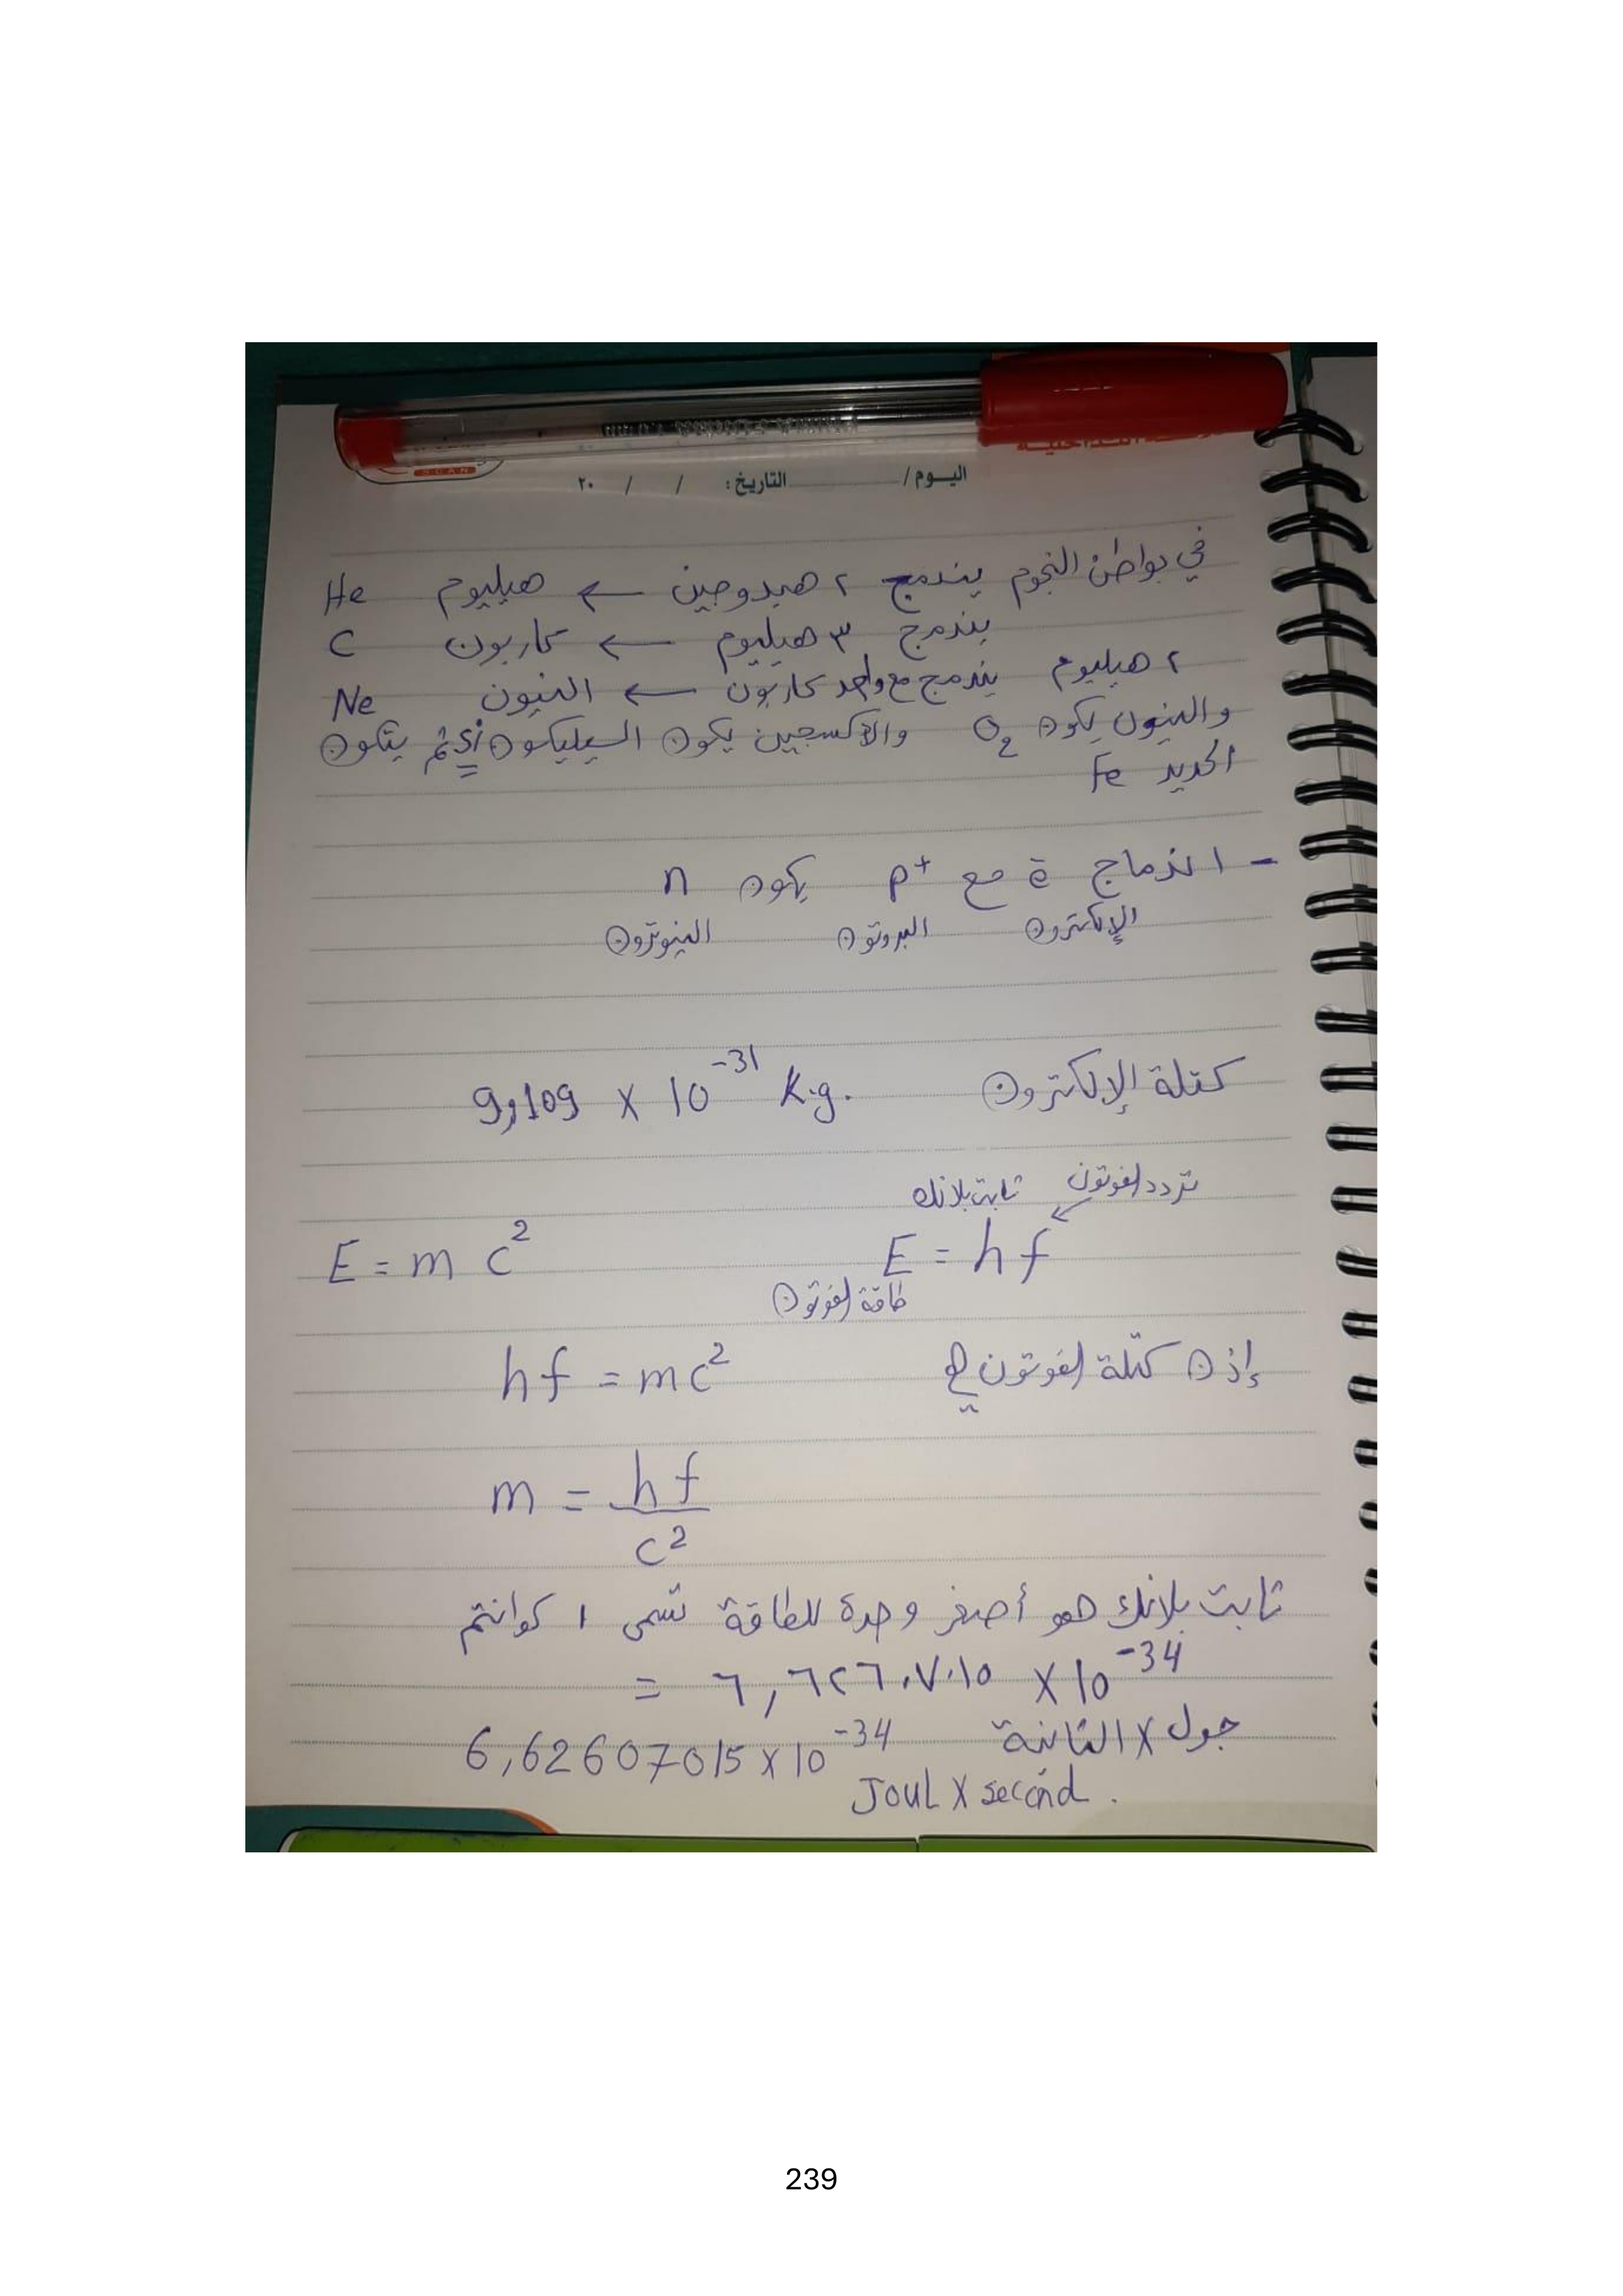 اليوم/ التاريخ: / / ٢٠
في بواطن النجوم يندمج ٢ هيدروجين ← هيليوم He
يندمج ٣ هيليوم ← كاربون C
٢ هيليوم يندمج مع واحد كاربون ← النيون Ne
والنيون يكون O₂ والأكسجين يكون السيليكون Si ثم يتكون
الحديد Fe
- اندماج e⁻ مع p⁺ يكون n
الإلكترون البروتون النيوترون
كتلة الإلكترون 9,109 x 10⁻³¹ K.g.
تردد الفوتون ثابت بلانك
E = h f E = m c²
طاقة الفوتون
إذن كتلة الفوتون هي hf = mc²
m = hf / c²
ثابت بلانك هو أصغر وحدة للطاقة تسمى ١ كوانتم
= ٦,٦٢٦٠٧٠١٥ x 10⁻³⁴
جول x الثانية 6,62607015 x 10⁻³⁴
Joul x second.
239